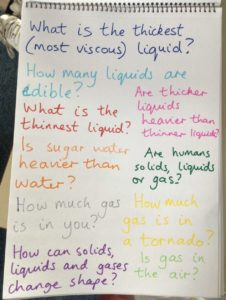 What is the thickest
(most viscous) liquid?
How many liquids are
edible?
Are thicker
liquids
heavier than
thinner liquids?
What is the
thinnest liquid?
Is sugar water
heavier than
water?
Are humans
solids, liquids
or gas?
How much gas
is in you?
How much
gas is in
a tornado?
How can solids,
liquids and gases
change shape?
Is gas
in the air?